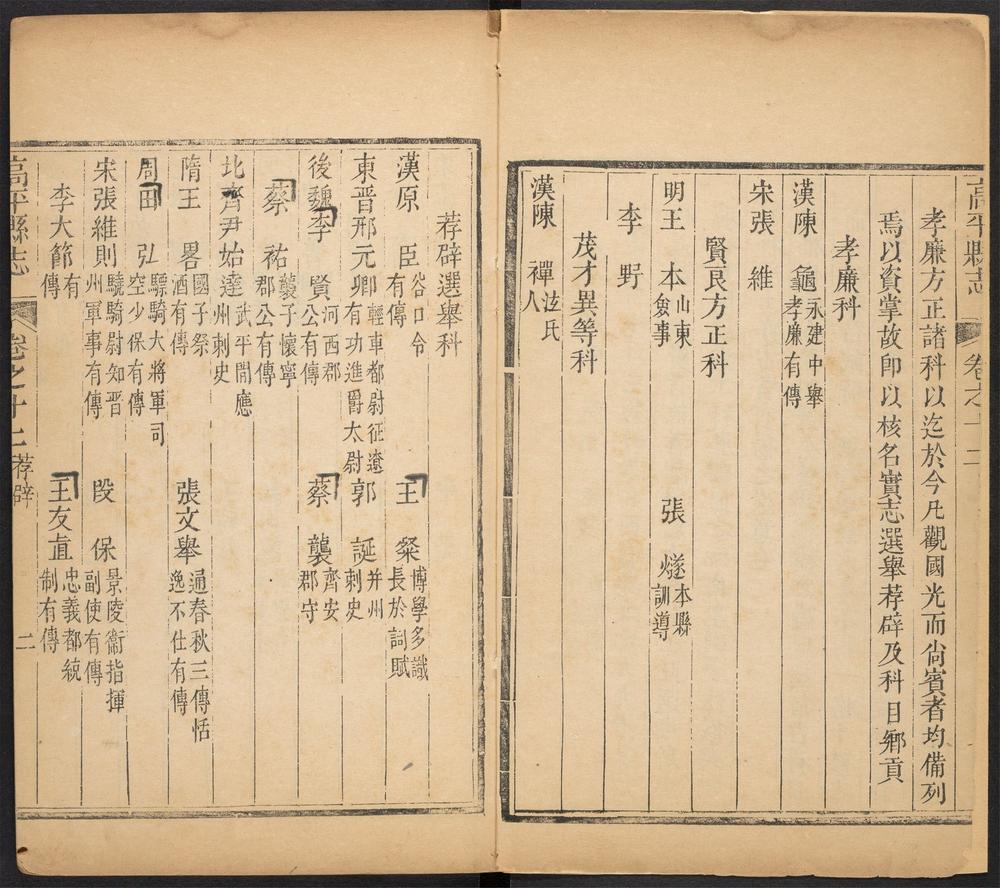 高平縣志 卷之十二
孝廉方正諸科以迄於今凡觀國光而尚賓者均備列
焉以資掌故卽以核名實志選舉荐辟及科目鄉貢
孝廉科
漢陳 龜 永建中舉孝廉有傳
宋張 維
賢良方正科
明王 本 山東僉事 張 燧 本縣訓導
李 野
茂才異等科
漢陳 禪 泫氏人
荐辟選舉科
漢原 臣 谷口令有傳 王 粲 博學多識長於詞賦
東晋邢元卿 輕車都尉征遼有功進爵太尉 郭 誕 并州刺史
後魏李 賢 河西郡公有傳 蔡 襲 齊安郡守
蔡 祐 襲子懷寧郡公有傳
北齊尹始達 武平間應州刺史
隋王 畧 國子祭酒有傳 張文舉 通春秋三傳恬逸不仕有傳
周田 弘 驃騎大將軍司空少保有傳
宋張維則 驍騎尉知晋州軍事有傳 段 保 景陵衞指揮副使有傳
李大節 有傳 王友直 忠義都統制有傳
高平縣志 卷之十二 荐辟 二